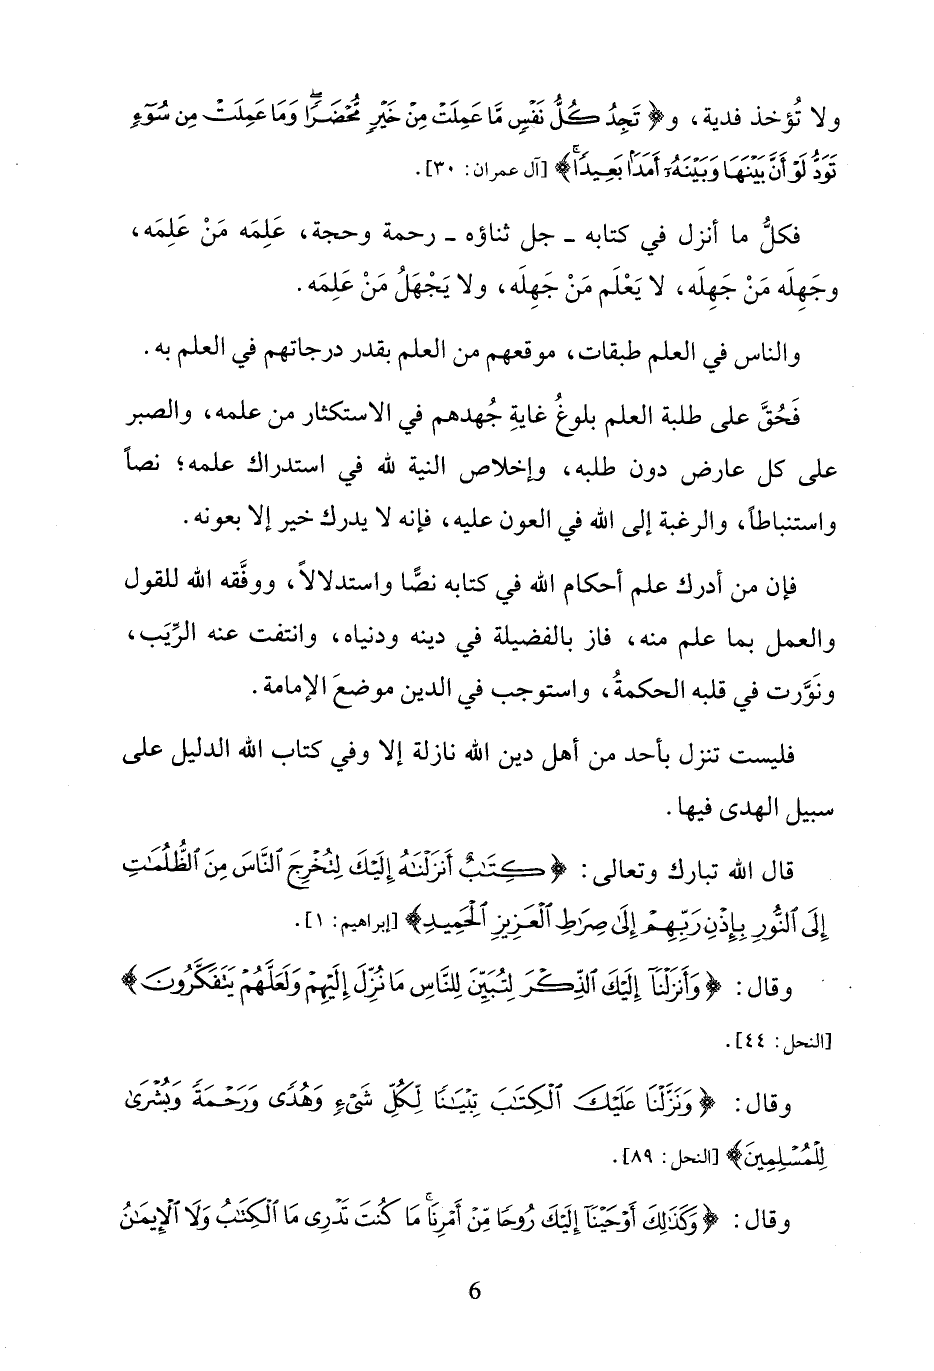 ولا تُؤخذ فدية، و﴿ تَجِدُ كُلُّ نَفْسٍ مَّا عَمِلَتْ مِنْ خَيْرٍ مُّحْضَرًۭا وَمَا عَمِلَتْ مِن سُوٓءٍ
تَوَدُّ لَوْ أَنَّ بَيْنَهَا وَبَيْنَهُۥٓ أَمَدًۢا بَعِيدًۭا ۗ﴾ [آل عمران: ٣٠].
فكلُّ ما أنزل في كتابه ـ جل ثناؤه ـ رحمة وحجة، عَلِمَه مَنْ عَلِمَه،
وجَهِلَه مَنْ جَهِلَه، لا يَعْلَم مَنْ جَهِلَه، ولا يَجْهَلُ مَنْ عَلِمَه.
والناس في العلم طبقات، موقعهم من العلم بقدر درجاتهم في العلم به.
فَحُقَّ على طلبة العلم بلوغُ غايةِ جُهدهم في الاستكثار من علمه، والصبر
على كل عارض دون طلبه، وإخلاص النية لله في استدراك علمه؛ نصاً
واستنباطاً، والرغبة إلى الله في العون عليه، فإنه لا يدرك خير إلا بعونه.
فإن من أدرك علم أحكام الله في كتابه نصًّا واستدلالاً، ووفَّقه الله للقول
والعمل بما علم منه، فاز بالفضيلة في دينه ودنياه، وانتفت عنه الرِّيَب،
ونَوَّرت في قلبه الحكمةُ، واستوجب في الدين موضعَ الإمامة.
فليست تنزل بأحد من أهل دين الله نازلة إلا وفي كتاب الله الدليل على
سبيل الهدى فيها.
قال الله تبارك وتعالى: ﴿ كِتَٰبٌ أَنزَلْنَٰهُ إِلَيْكَ لِتُخْرِجَ ٱلنَّاسَ مِنَ ٱلظُّلُمَٰتِ
إِلَى ٱلنُّورِ بِإِذْنِ رَبِّهِمْ إِلَىٰ صِرَٰطِ ٱلْعَزِيزِ ٱلْحَمِيدِ﴾ [إبراهيم: ١].
وقال: ﴿ وَأَنزَلْنَآ إِلَيْكَ ٱلذِّكْرَ لِتُبَيِّنَ لِلنَّاسِ مَا نُزِّلَ إِلَيْهِمْ وَلَعَلَّهُمْ يَتَفَكَّرُونَ﴾
[النحل: ٤٤].
وقال: ﴿ وَنَزَّلْنَا عَلَيْكَ ٱلْكِتَٰبَ تِبْيَٰنًا لِّكُلِّ شَىْءٍ وَهُدًى وَرَحْمَةً وَبُشْرَىٰ
لِلْمُسْلِمِينَ﴾ [النحل: ٨٩].
وقال: ﴿ وَكَذَٰلِكَ أَوْحَيْنَآ إِلَيْكَ رُوحًا مِّنْ أَمْرِنَا ۚ مَا كُنتَ تَدْرِى مَا ٱلْكِتَٰبُ وَلَا ٱلْإِيمَٰنُ
6